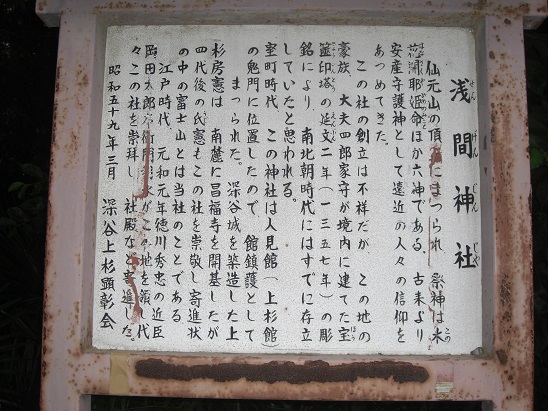 浅間神社
せんげんじんじゃ
仙元山の頂にまつられ 祭神は木
花開耶姫命ほか六神である。古来より
安産守護神として遠近の人々の信仰を
あつめてきた。
この社の創立は不祥だが、この地の
豪族、大夫四郎家守が境内に建てた宝
篋印塔の延文二年(一三五七年)の彫
銘により、南北朝時代にはすでに存立
していたと思われる。
室町時代、この神社は人見館(上杉館)
の鬼門に位置したので、館鎮護として
まつられた。深谷城を築造した上
杉房憲は、南麓に昌福寺を開基したが
四代後の氏憲もこの社を崇敬し寄進状
の中の富士山とは当社のことである。
江戸時代、元和元年徳川秀忠の近臣
岡田太郎 衛門 がこの地を領し代
々この社を崇拝し、社殿など寄進した。
昭和五十九年三月 深谷上杉顕彰会